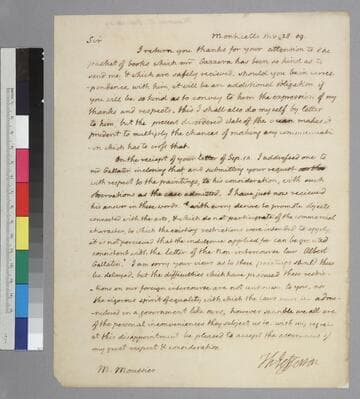 Sir
Monticello Nov. 28. 09.
I return you thanks for your attention to the
packet of books which mr Carrera has been so kind as to
send me, & which are safely recieved. should you be in corres-
-pondence with him, it will be an additional obligation if
you will be so kind as to convey to him the expression of my
thanks and respects. this I shall also do myself by letter
to him but the present disordered state of the ocean makes it
prudent to multiply the chances of making any communicati-
-on which has to cross that.
On the reciept of your letter of Sep. 12. I addressed one to
mr Gallatin inclosing that and submitting your request
with respect to the paintings, to his consideration, with such
observations as the case admitted. I have just now recieved
his answer in these words. "with every desire to promote objects
connected with the arts, & which do not partake of the commercial
character, to which the existing restrictions were intended to apply,
it is not percieved that the indulgence applied for can be granted
consistent with the letter of the Non intercourse law. Albert
Gallatin." I am sorry your views as to these paintings should thus
be delayed, but the difficulties which have produced these restric-
-tions on our foreign intercourse are not unknown to you, nor
the rigorous spirit of equality with which the laws must be admi-
-nistered in a government like ours, however sensible we all are
of the personal inconveniences they subject us to. with my regret
at this disappointment be pleased to accept the assurances of
my great respect & consideration.
Th: Jefferson
M. Moussier